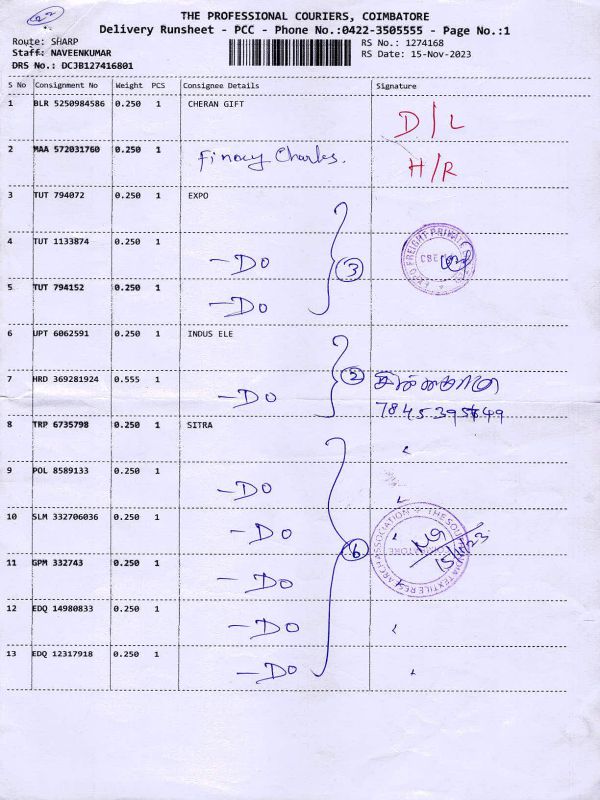 22
THE PROFESSIONAL COURIERS, COIMBATORE
Delivery Runsheet - PCC - Phone No.:0422-3505555 - Page No.:1
Route: SHARP RS No.: 1274168
Staff: NAVEENKUMAR RS Date: 15-Nov-2023
DRS No.: DCJB127416801
S No Consignment No Weight PCS Consignee Details Signature
1 BLR 5250984586 0.250 1 CHERAN GIFT D/L
2 MAA 572031760 0.250 1 Finowy Charles. H/R
3 TUT 794072 0.250 1 EXPO
4 TUT 1133874 0.250 1 -DO 3
5 TUT 794152 0.250 1 -DO
6 UPT 6062591 0.250 1 INDUS ELE
7 HRD 369281924 0.555 1 -DO 2
8 TRP 6735798 0.250 1 SITRA
9 POL 8589133 0.250 1 -DO
10 SLM 332706036 0.250 1 -DO
11 GPM 332743 0.250 1 -DO 6 15/11/23
12 EDQ 14980833 0.250 1 -DO
13 EDQ 12317918 0.250 1 -DO